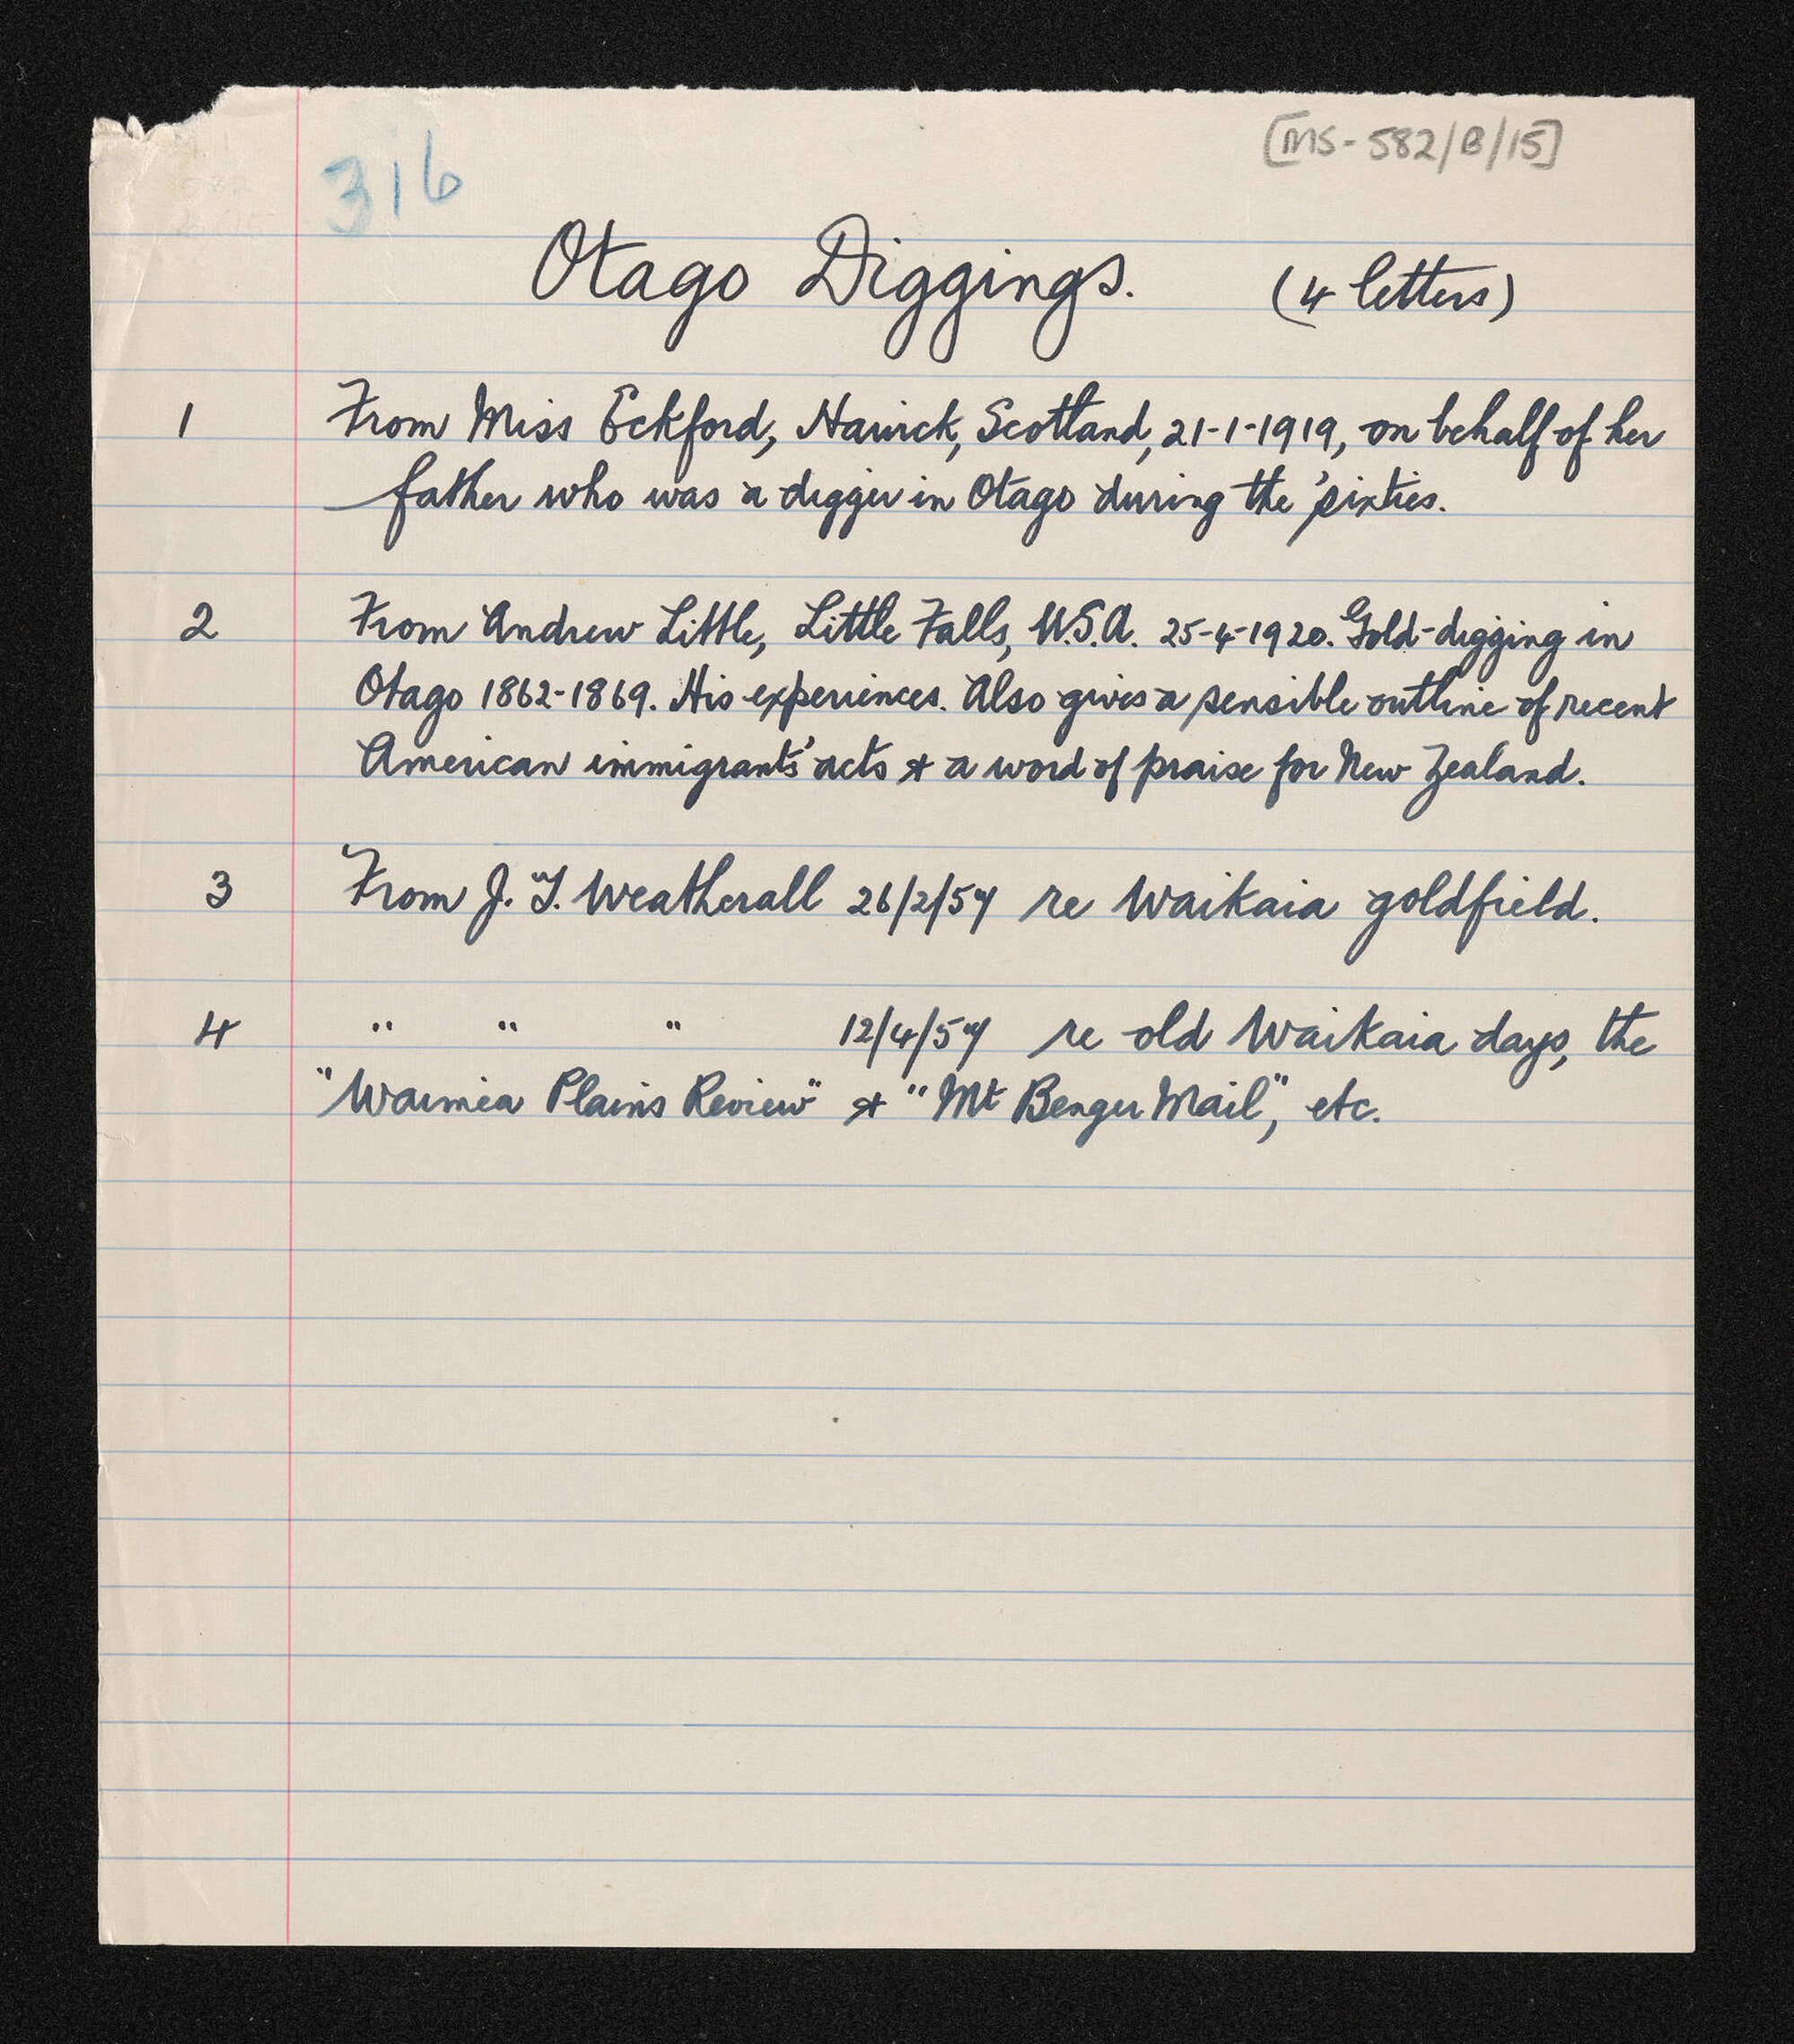 316
[MS-582/B/15]
Otago Diggings. (4 letters)
1 From Miss Eckford, Hawick, Scotland, 21-1-1919, on behalf of her
father who was a digger in Otago during the 'sixties.
2 From Andrew Little, Little Falls, U.S.A. 25-4-1920. Gold-digging in
Otago 1862-1869. His experiences. Also gives a sensible outline of recent
American immigrants' acts & a word of praise for New Zealand.
3 From J. T. Weatherall 26/2/57 re Waikaia goldfield.
4 " " " 12/4/57 re old Waikaia days, the
"Waimea Plains Review" & "Mt Benger Mail", etc.